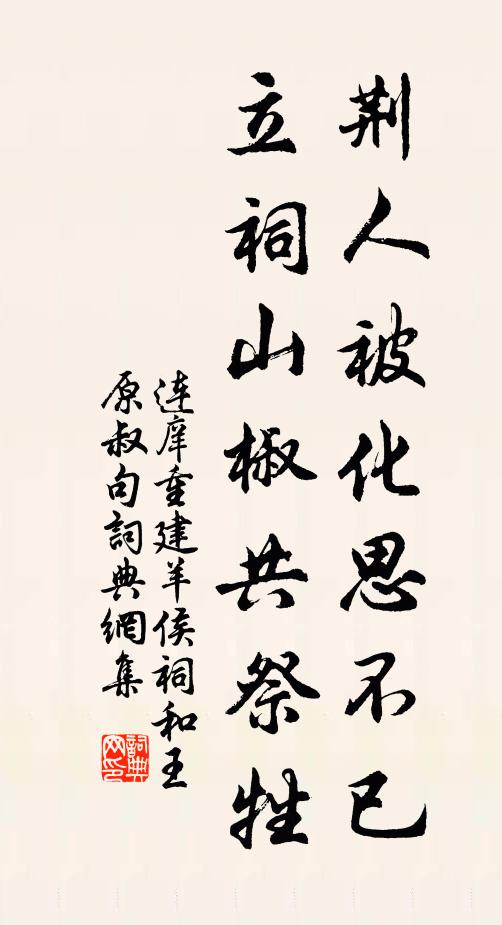 荆人被化思不已
立祠山椒共祭牲
連庠重建羊侯祠和王
原叔句詞典網集
詞典
网印